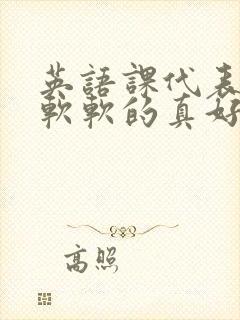 英語課代表
軟軟的真好
高照